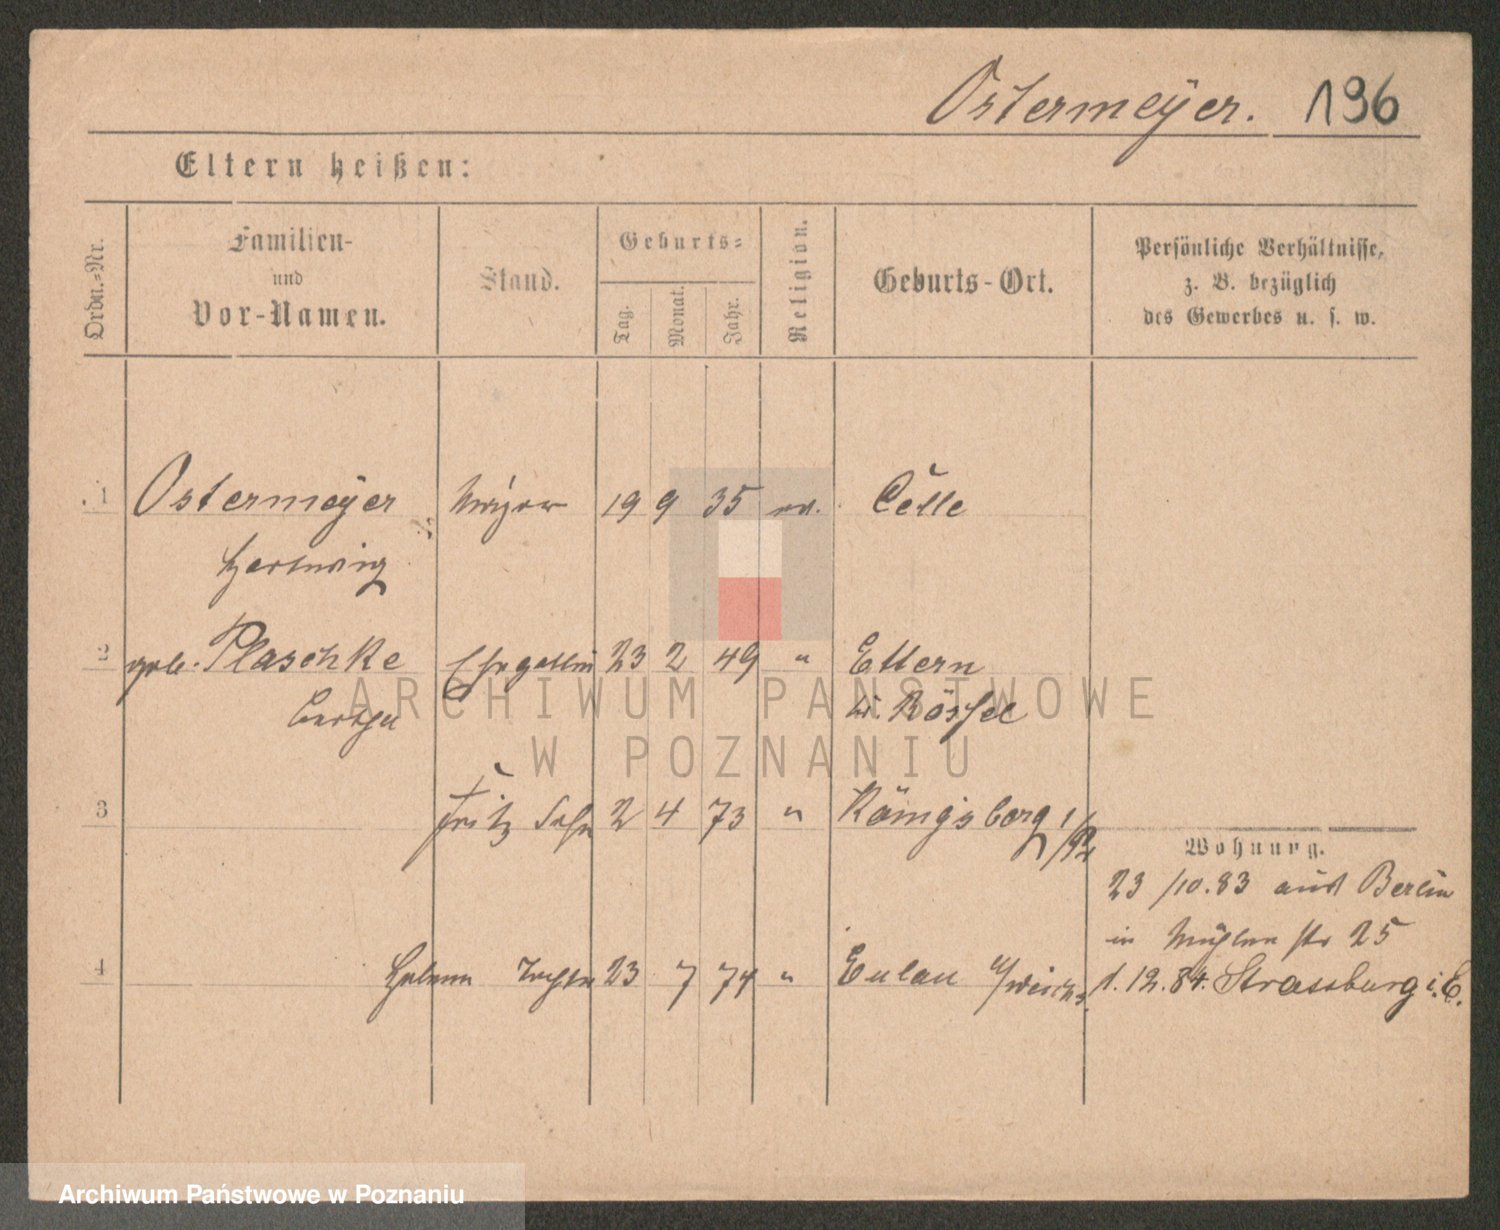 Ostermeÿer. 196
Eltern heißen:
Ordn.-Nr.
Familien-
und
Vor-Namen.
Stand.
Geburts-
Tag.
Monat.
Jahr.
Religion.
Geburts-Ort.
Persönliche Verhältnisse,
z. B. bezüglich
des Gewerbes u. s. w.
1 Ostermeÿer Major 19 9 35 ev. Celle
Hartwig
2 geb. Plaschke Ehegattin 23 2 49 " Ettern
Bertha Kr. Rössel
3 Fritz Sohn 2 4 73 " Königsberg i/Pr
Wohnung.
23/10.83 aus Berlin
in Mühlen str 25
4 Helene Tochter 23 7 74 " Eulau 1.12.84. Strassburg i. E.
ARCHIWUM PAŃSTWOWE
W POZNANIU
Archiwum Państwowe w Poznaniu